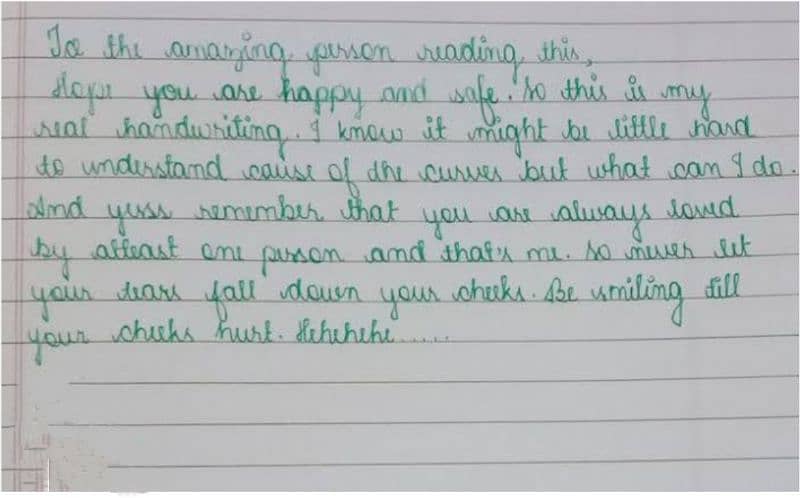 To the amazing person reading this,
Hope you are happy and safe. So this is my
real handwriting. I know it might be little hard
to understand cause of the curves but what can I do.
And yess remember that you are always loved
by atleast one person and that's me. So never let
your tears fall down your cheeks. Be smiling till
your cheeks hurt. Hehehehe.....